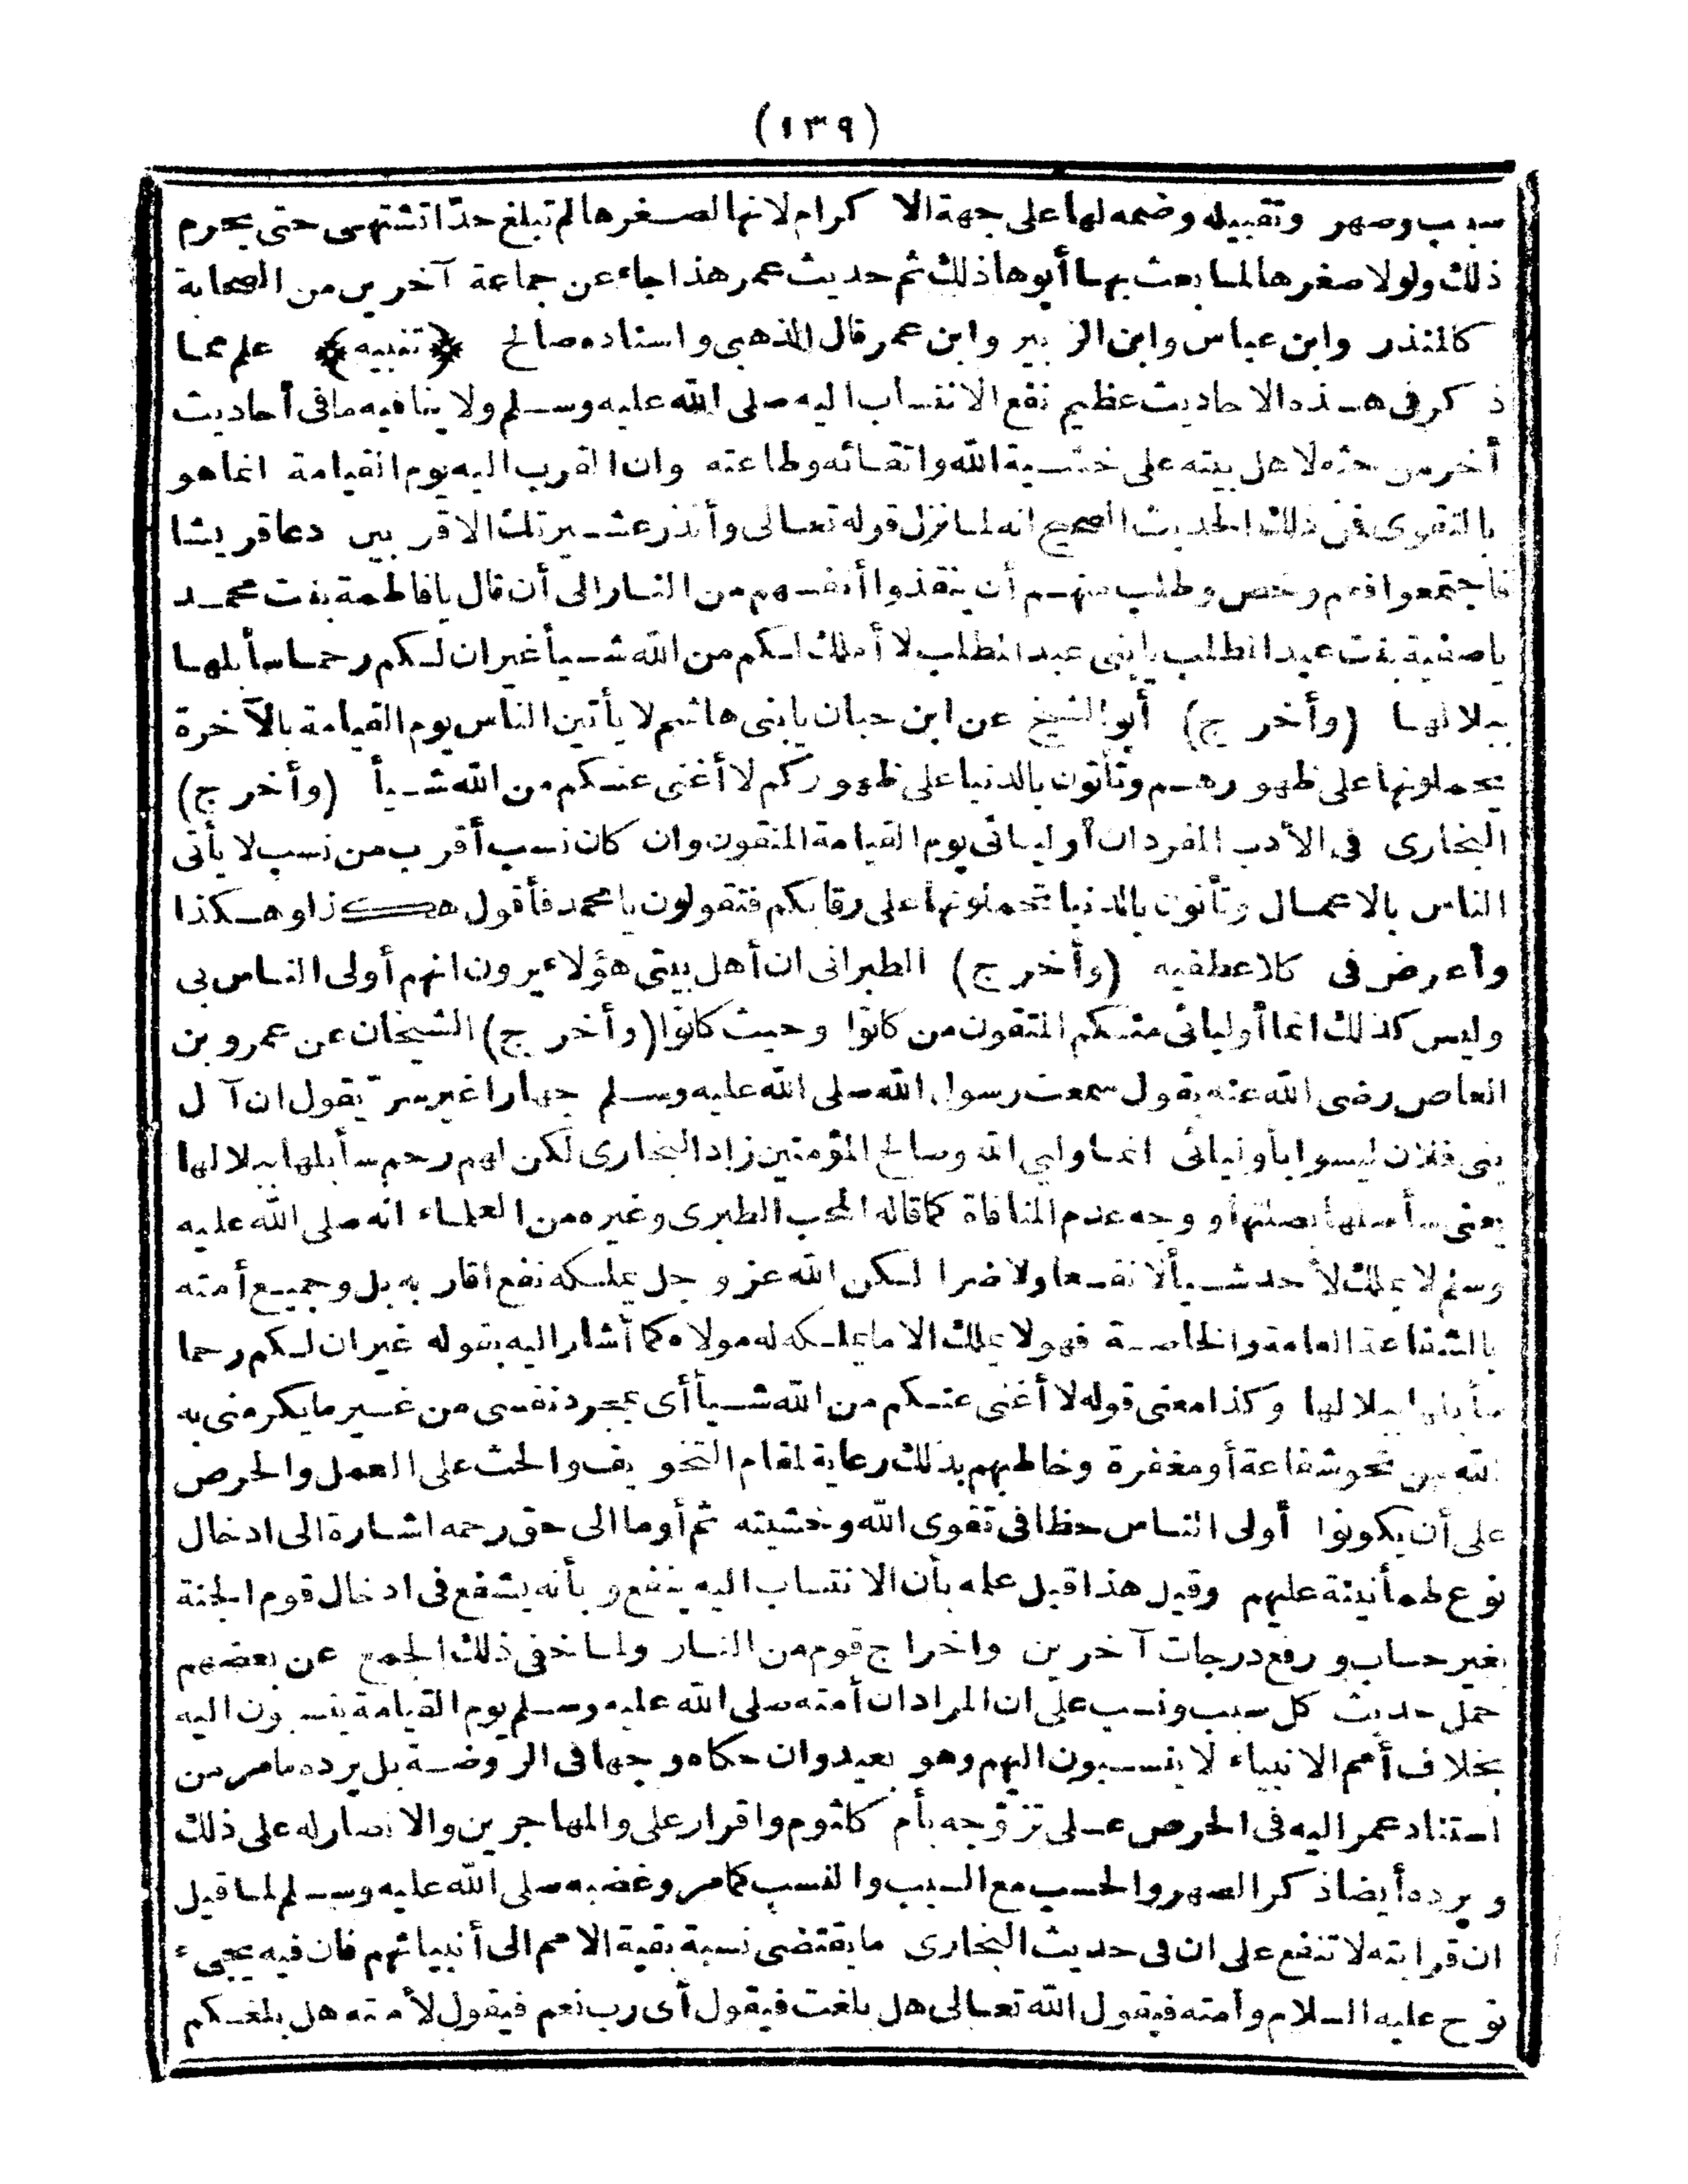 (١٣٩)
سبب وصهر وتقبيله وضمه لها على جهة الاكرام لانها لصغرها لم تبلغ حدّا تشتهى حتى يحرم
ذلك ولولا صغرها لما بعث بها أبوها ذلك ثم حديث عمر هذا جاء عن جماعة آخرين من الصحابة
كالمنذر وابن عباس وابن الزبير وابن عمر قال الذهبى واسناده صالح ﴿تنبيه﴾ علم مما
ذكر فى هذه الاحاديث عظيم نفع الانتساب اليه صلى الله عليه وسلم ولا ينافيه ما فى أحاديث
أخر من حثه لاهل بيته على خشية الله واتقائه وطاعته وان القرب اليه يوم القيامة انما هو
بالتقوى فمن ذلك الحديث الصحيح انه لما نزل قوله تعالى وأنذر عشيرتك الاقربين دعا قريشا
فاجتمعوا فعم وخص وطلب منهم أن ينقذوا أنفسهم من النار الى أن قال يا فاطمة بنت محمد
يا صفية بنت عبد المطلب يا بنى عبد المطلب لا أملك لكم من الله شيأ غير ان لكم رحما سأبلها
ببلالها (وأخرج) أبو الشيخ عن ابن حبان يا بنى هاشم لا يأتين الناس يوم القيامة بالآخرة
يحملونها على ظهورهم وتأتون بالدنيا على ظهوركم لا أغنى عنكم من الله شيأ (وأخرج)
البخارى فى الأدب المفرد ان أوليائى يوم القيامة المتقون وان كان نسب أقرب من نسب لا يأتى
الناس بالاعمال وتأتون بالدنيا تحملونها على رقابكم فتقولون يا محمد فأقول هكذا وهكذا
وأعرض فى كلا عطفيه (وأخرج) الطبرانى ان أهل بيتى هؤلاء يرون انهم أولى الناس بى
وليس كذلك انما أوليائى منكم المتقون من كانوا وحيث كانوا (وأخرج) الشيخان عن عمرو بن
العاص رضى الله عنه يقول سمعت رسول الله صلى الله عليه وسلم جهارا غير سرّ يقول ان آل
بنى فلان ليسوا بأوليائى انما وليى الله وصالح المؤمنين زاد البخارى لكن لهم رحم سأبلها ببلالها
يعنى سأصلها بصلتها ووجه عدم المنافاة كما قاله المحب الطبرى وغيره من العلماء انه صلى الله عليه
وسلم لا يملك لأحد شيأ لا نفعا ولا ضرا لكن الله عز وجل يملكه نفع اقاربه بل وجميع أمته
بالشفاعة العامة والخاصة فهو لا يملك الا ما يملكه له مولاه كما أشار اليه بقوله غير ان لكم رحما
سأبلها ببلالها وكذا معنى قوله لا أغنى عنكم من الله شيأ أى بمجرد نفسى من غير ما يكرمنى به
الله من نحو شفاعة أو مغفرة وخاطبهم بذلك رعاية لمقام التخويف والحث على العمل والحرص
على أن يكونوا أولى الناس حظا فى تقوى الله وخشيته ثم أوما الى حق رحمه اشارة الى ادخال
نوع طمأنينة عليهم وقيل هذا قبل علمه بأن الانتساب اليه ينفع وبأنه يشفع فى ادخال قوم الجنة
بغير حساب ورفع درجات آخرين واخراج قوم من النار ولما خفى ذلك الجمع عن بعضهم
حمل حديث كل سبب ونسب على ان المراد ان أمته صلى الله عليه وسلم يوم القيامة ينسبون اليه
بخلاف أمم الانبياء لا ينسبون اليهم وهو بعيد وان حكاه وجها فى الروضة بل يرده ما مر من
استناد عمر اليه فى الحرص على تزوّجه بأم كلثوم واقرار على والمهاجرين والانصار له على ذلك
ويرده أيضا ذكر الصهر والحسب مع السبب والنسب كما مر وغضبه صلى الله عليه وسلم لما قيل
ان قرابته لا تنفع على ان فى حديث البخارى ما يقتضى نسبة بقية الامم الى أنبيائهم فان فيه يجىء
نوح عليه السلام وأمته فيقول الله تعالى هل بلغت فيقول أى رب نعم فيقول لأمته هل بلغكم